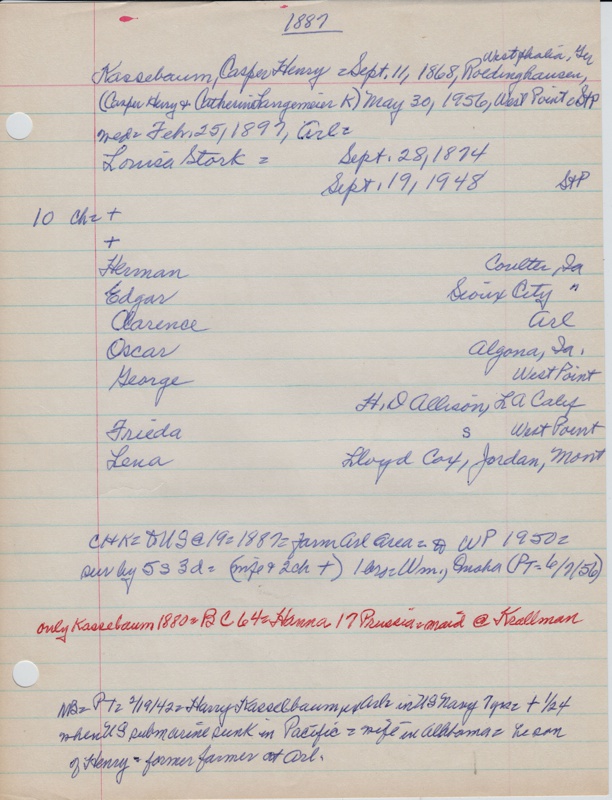 1887
Westphalia, Ger
Kassebaum, Casper Henry = Sept. 11, 1868, Rodinghausen,
(Casper Henry & Catherine Langemeier K) May 30, 1956, West Point StP
med= Feb. 25, 1897, Arl=
Louisa Stork = Sept. 28, 1874
Sept. 19, 1948 StP
10 ch= +
+
Herman Coulter, Ia
Edgar Sioux City "
Clarence Arl
Oscar Algona, Ia.
George West Point
H. D Allison, LA Calif
Frieda s West Point
Lena Lloyd Cox, Jordan, Mont
CHK= to US @ 19= 1887= farm Arl area= to WP 1950=
sur by 5s 3d= (wife & 2ch +) 1 bro= Wm., Omaha (PT= 6/7/56)
only Kassebaum 1880= BC 64= Hanna 17 Prussia= maid @ Krallman
NB= PT= 2/19/42= Harry Kasselbaum, Arl= in US Navy 7 yrs= + 1/24
when US submarine sunk in Pacific= wife in Alabama= he son
of Henry= former farmer at Arl.